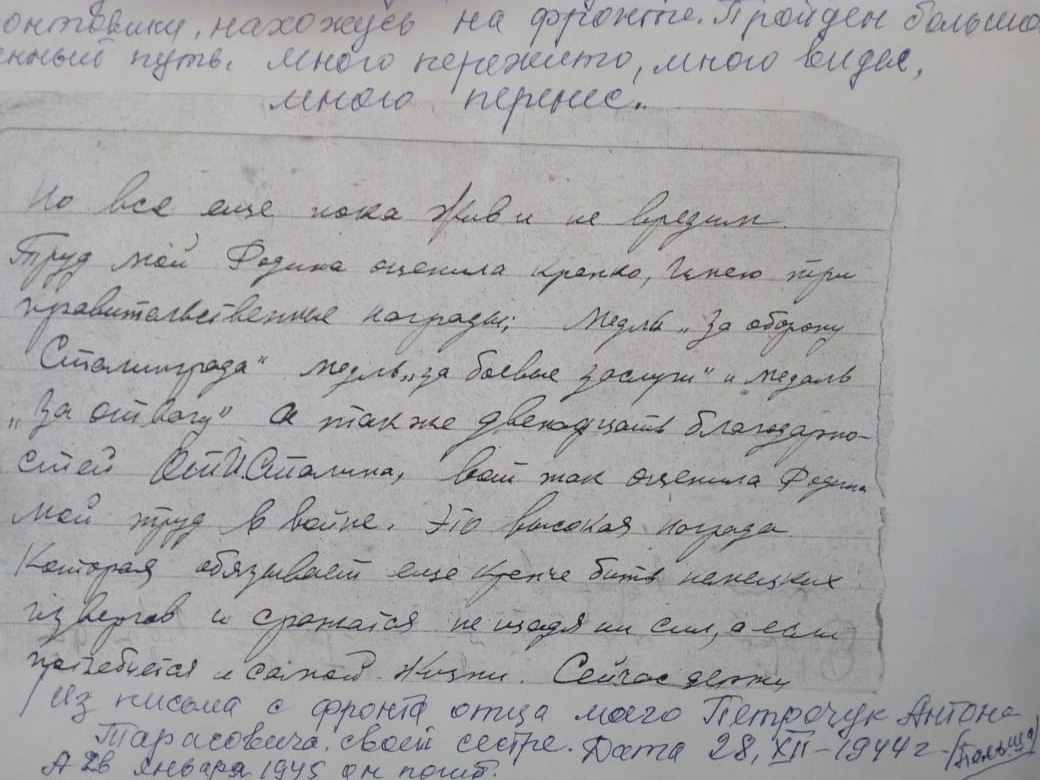 онтовики, нахожусь на фронте. Пройден большо
енный путь. Много пережито, много видел,
много перенес.
Но все еще пока жив и не вредим.
Труд мой Родина оценила крепко, Имею три
правительственные награды; Медль „За оборону
Сталинграда" медль „за боевые заслуги" и медаль
„За отвагу" а так же двенадцать благодарно-
стей От И.Сталина, вот так оценила Родина
мой труд в войне. Это высокая награда
Которая обязывает еще крепче бить немецких
извергов и сражатся не щадя ни сил, а если
потебуется и самой Жизни. Сейчас держу
/Из письма с фронта отца моего Петрочук Антона
Тарасовича. своей сестре. Дата 28, XII-1944 г-(Польша)
А 26 января 1945 он погиб.